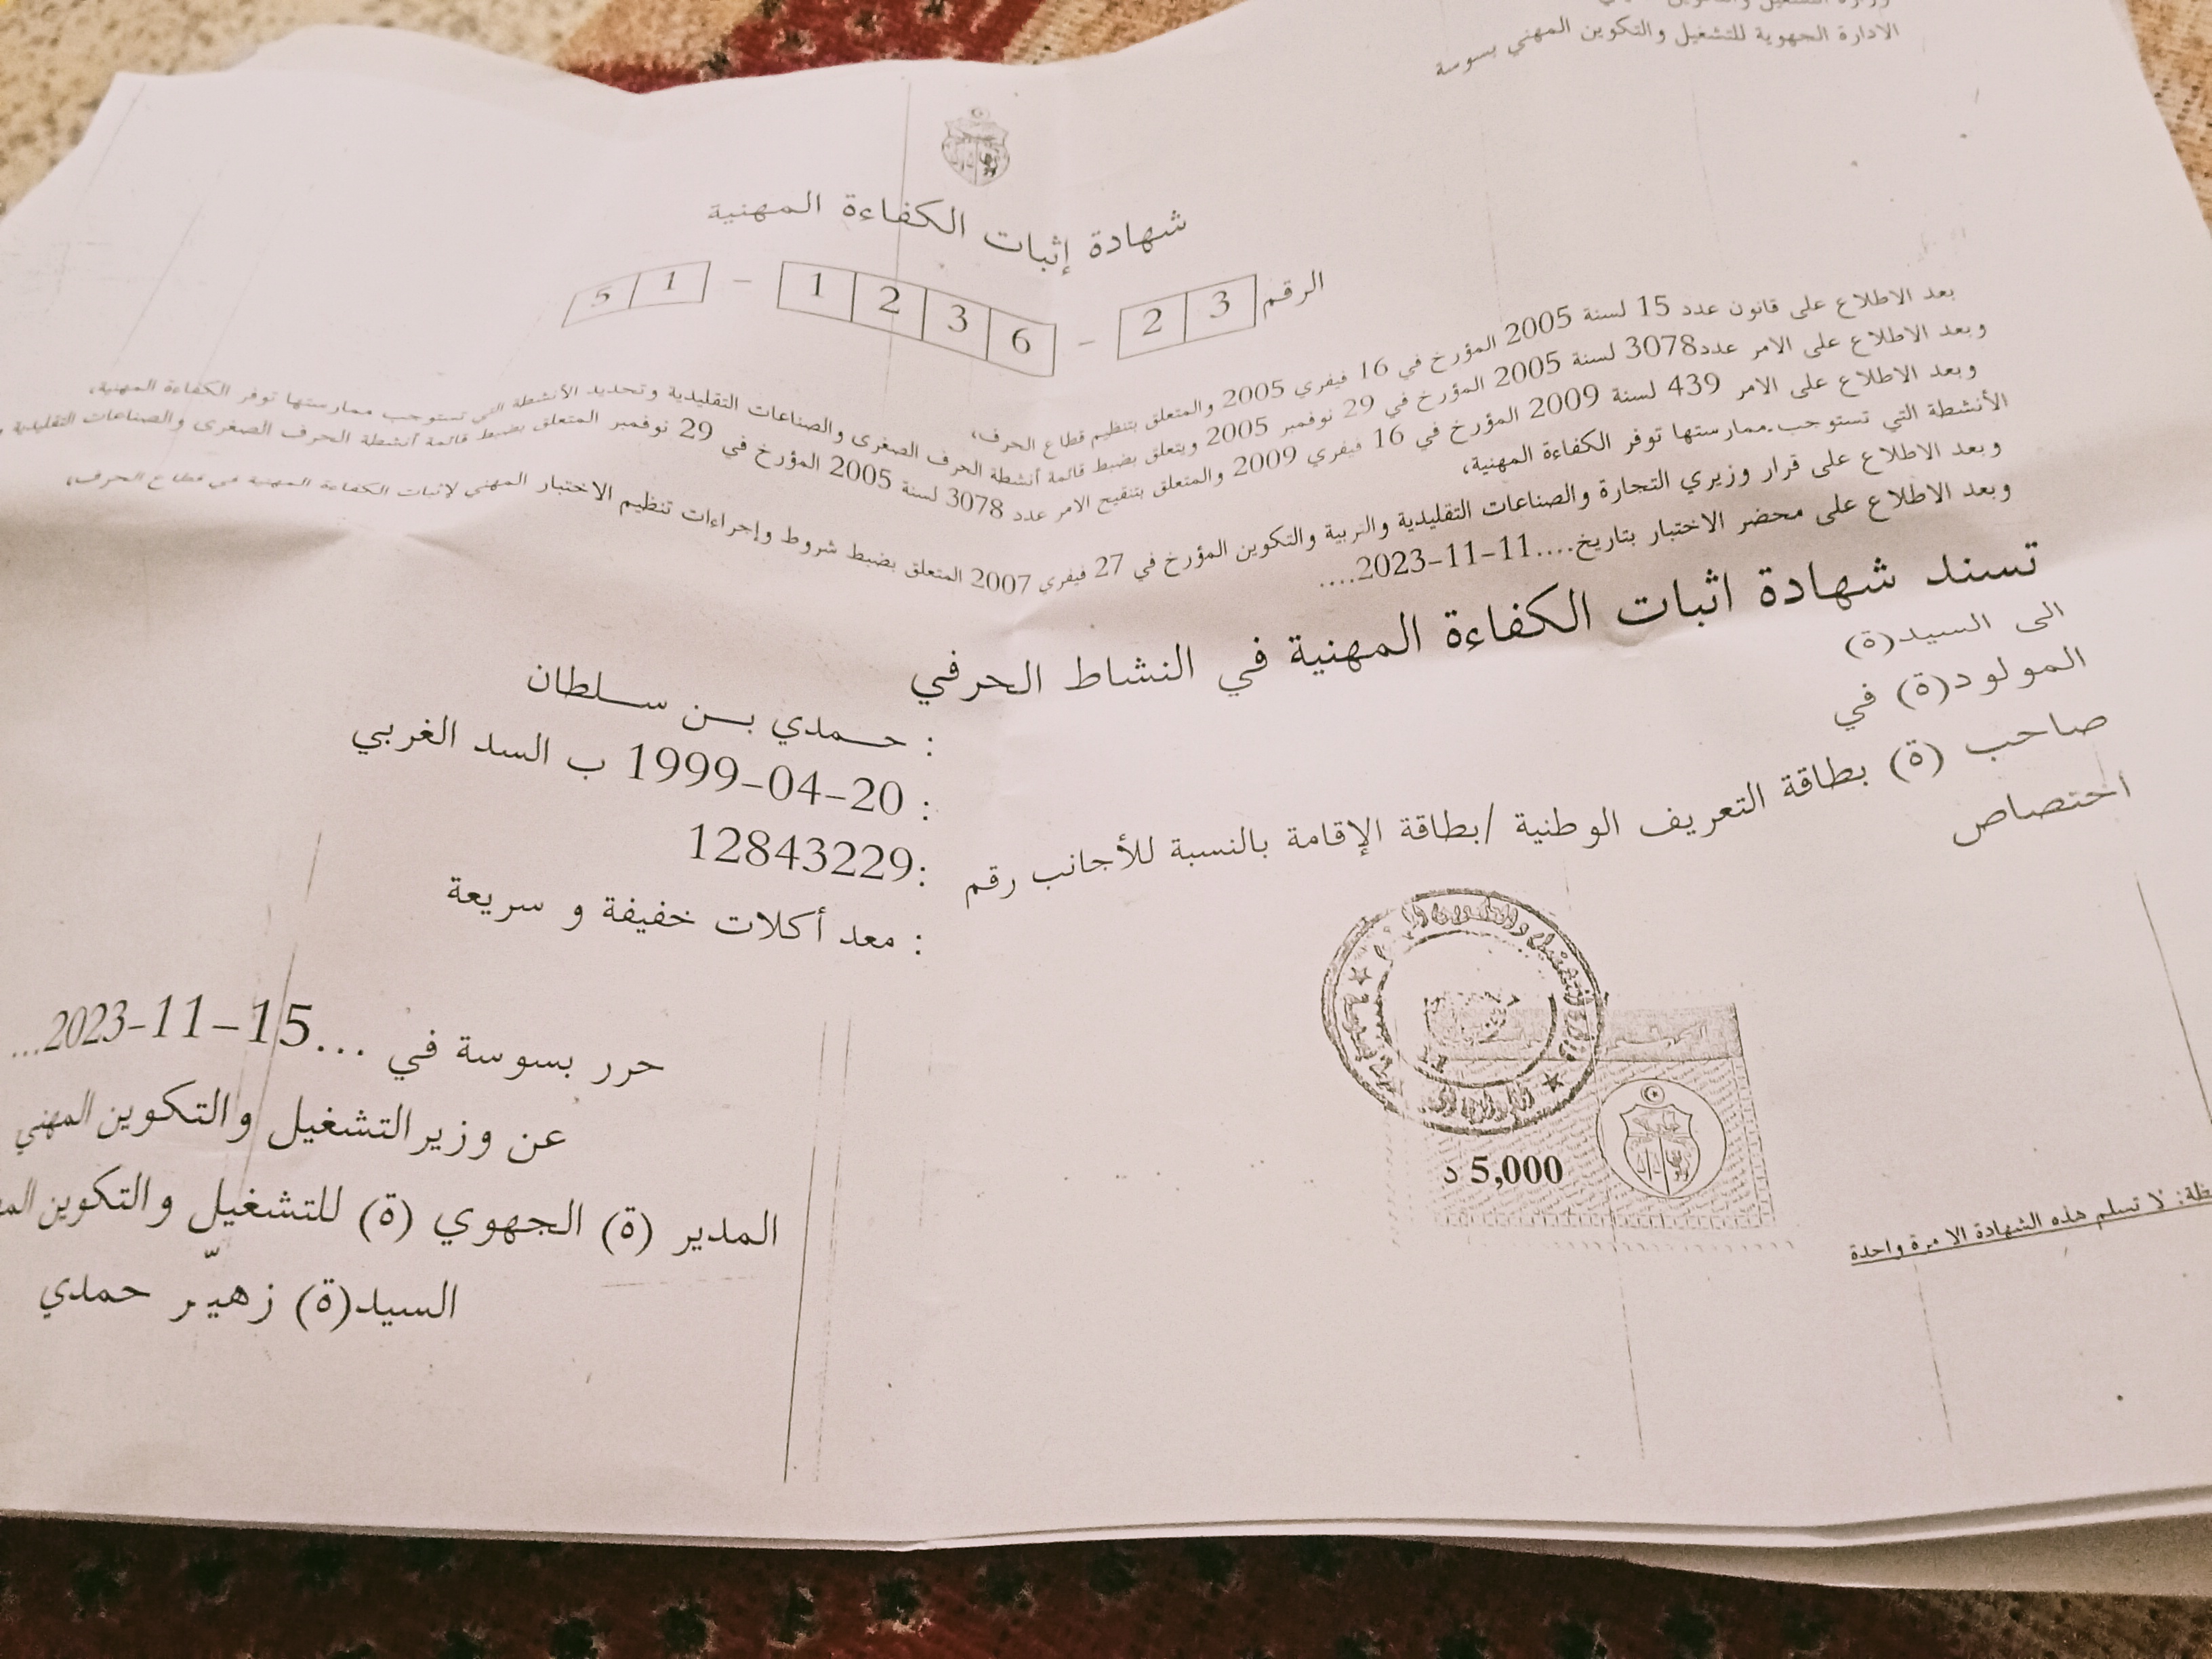 وزارة التشغيل والتكوين
الادارة الجهوية للتشغيل والتكوين المهني بسوسة
شهادة إثبات الكفاءة المهنية
الرقم 23 - 1236 - 51
بعد الاطلاع على قانون عدد 15 لسنة 2005 المؤرخ في 16 فيفري 2005 والمتعلق بتنظيم قطاع الحرف،
وبعد الاطلاع على الامر عدد3078 لسنة 2005 المؤرخ في 29 نوفمبر 2005 ويتعلق بضبط قائمة أنشطة الحرف الصغرى والصناعات التقليدية وتحديد الأنشطة التي تستوجب ممارستها توفر الكفاءة المهنية،
وبعد الاطلاع على الامر 439 لسنة 2009 المؤرخ في 16 فيفري 2009 والمتعلق بتنقيح الامر عدد 3078 لسنة 2005 المؤرخ في 29 نوفمبر المتعلق بضبط قائمة أنشطة الحرف الصغرى والصناعات التقليدية و
الأنشطة التي تستوجب ممارستها توفر الكفاءة المهنية،
وبعد الاطلاع على قرار وزيري التجارة والصناعات التقليدية والتربية والتكوين المؤرخ في 27 فيفري 2007 المتعلق بضبط شروط وإجراءات تنظيم الاختبار المهني لإثبات الكفاءة المهنية في قطاع الحرف،
وبعد الاطلاع على محضر الاختبار بتاريخ....11-11-2023....
تسند شهادة اثبات الكفاءة المهنية في النشاط الحرفي
الى السيد(ة) : حمدي بن سلطان
المولود(ة) في : 20-04-1999 ب السد الغربي
صاحب (ة) بطاقة التعريف الوطنية /بطاقة الإقامة بالنسبة للأجانب رقم :12843229
اختصاص : معد أكلات خفيفة و سريعة
حرر بسوسة في ...15-11-2023...
عن وزير التشغيل والتكوين المهني
المدير (ة) الجهوي (ة) للتشغيل والتكوين
السيد(ة) زهيّر حمدي
5,000 د
لا تسلم هذه الشهادة الا مرة واحدة